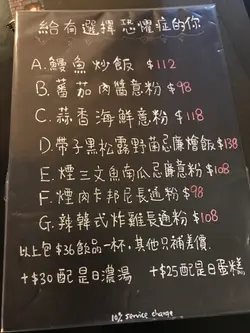 給有選擇恐懼症的你
A. 鰻魚炒飯 $112
B. 蕃茄肉醬意粉 $98
C. 蒜香海鮮意粉 $118
D. 帶子黑松露野菌忌廉燴飯 $138
E. 煙三文魚南瓜忌廉意粉 $108
F. 煙肉卡邦尼長通粉 $98
G. 辣韓式炸雞長通粉 $108
以上包$36飲品一杯,其他只補差價.
+$30配是日濃湯 +$25配是日蛋糕
10% service charge